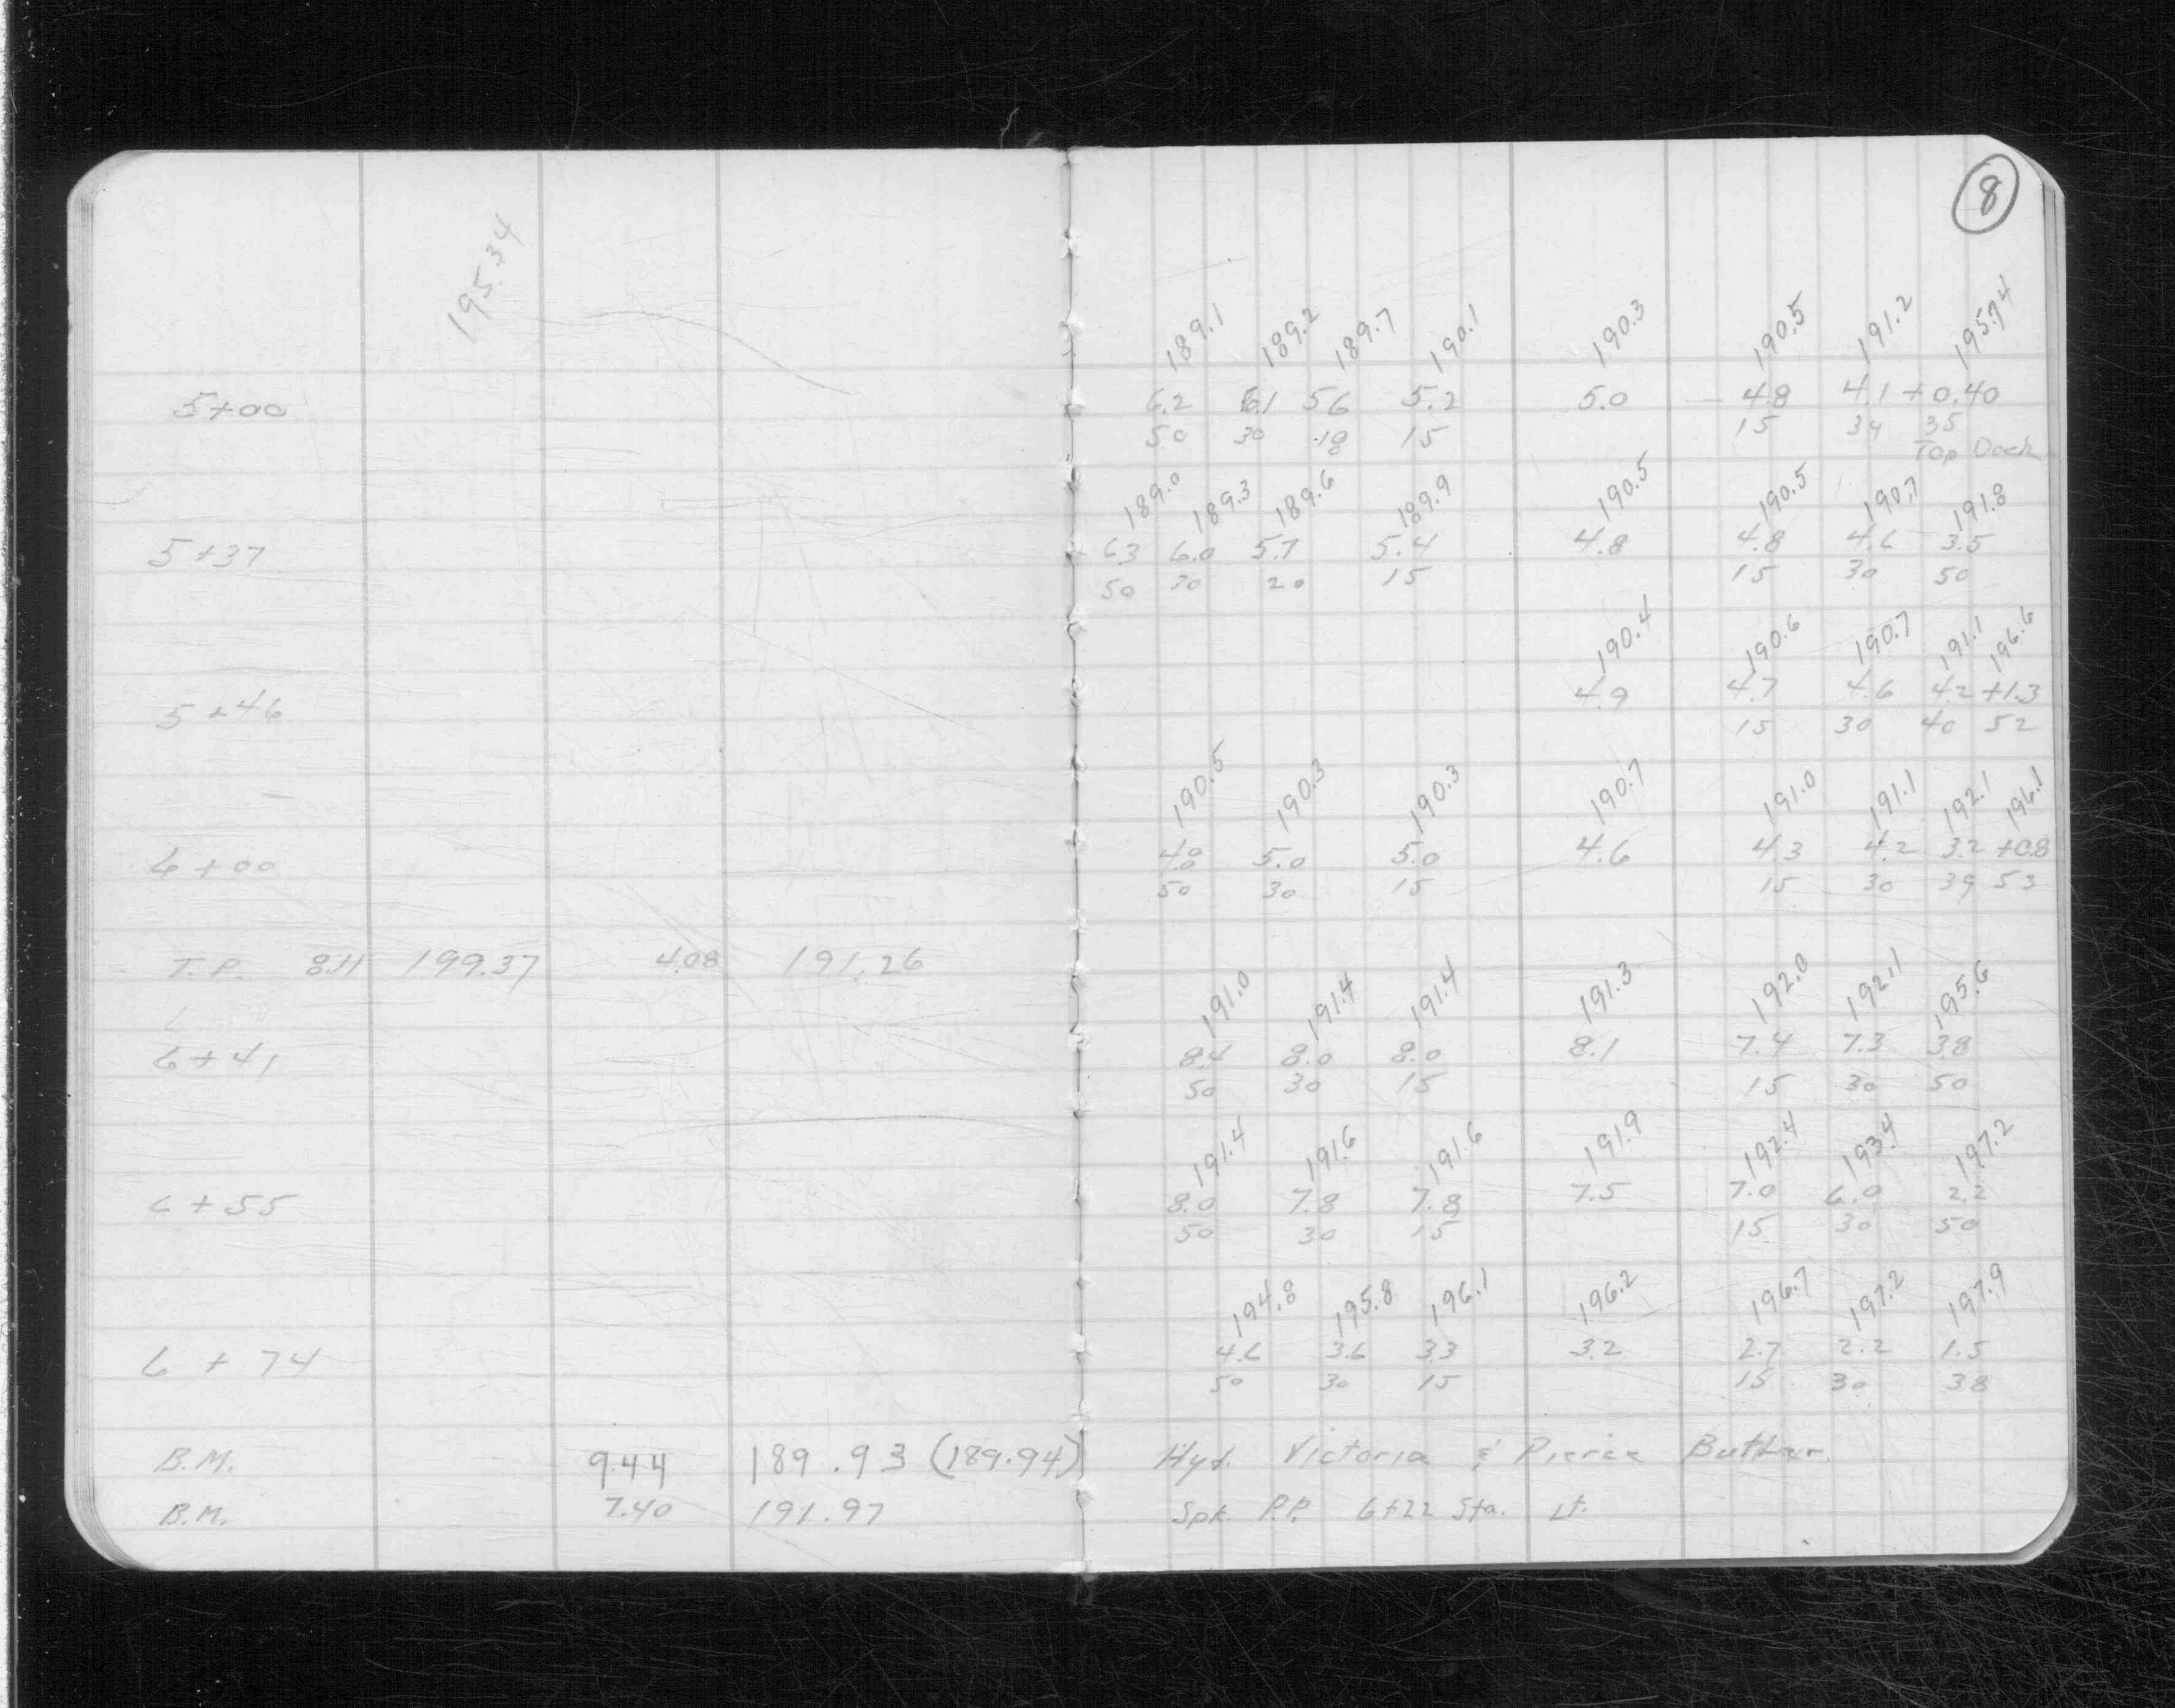 8
195.34
189.1 189.2 189.7 190.1 190.3 190.5 191.2 195.74
5+00 6.2 6.1 5.6 5.2 5.0 4.8 4.1 +0.40
50 30 18 15 15 34 35
Top Dock
189.0 189.3 189.6 189.9 190.5 190.5 190.7 191.8
5+37 6.3 6.0 5.7 5.4 4.8 4.8 4.6 3.5
50 30 20 15 15 30 50
190.4 190.6 190.7 191.1 196.6
5+46 4.9 4.7 4.6 4.2 +1.3
15 30 40 52
190.5 190.3 190.3 190.7 191.0 191.1 192.1 196.1
6+00 5.0 5.0 4.6 4.3 4.2 3.2 +0.8
50 30 15 15 30 39 53
T.P. 8.11 199.37 4.08 191.26
191.0 191.4 191.4 191.3 192.0 192.1 195.6
6+41 8.4 8.0 8.0 8.1 7.4 7.3 3.8
50 30 15 15 30 50
191.4 191.6 191.6 191.9 192.4 193.4 197.2
6+55 8.0 7.8 7.8 7.5 7.0 6.0 2.2
50 30 15 15 30 50
194.8 195.8 196.1 196.2 196.7 197.2 197.9
6+74 4.6 3.6 3.3 3.2 2.7 2.2 1.5
50 30 15 15 30 38
B.M. 9.44 189.93 (189.94) Hyd. Victoria & Pierce Butler.
B.M. 7.40 191.97 Spk. P.P. 6+22 Sta. Lt.